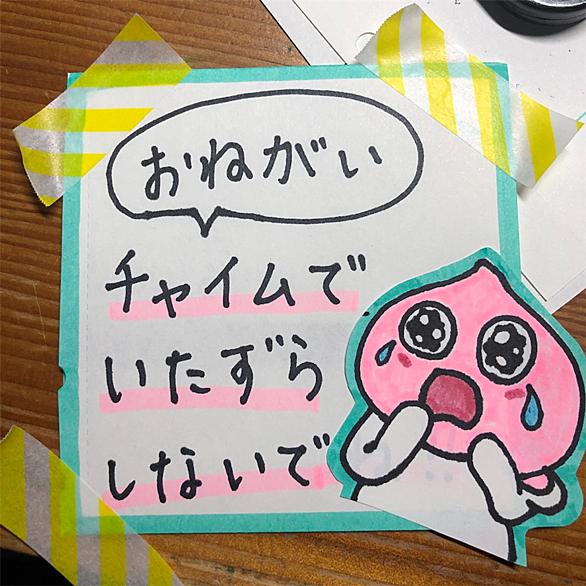 おねがい
チャイムで
いたずら
しないで